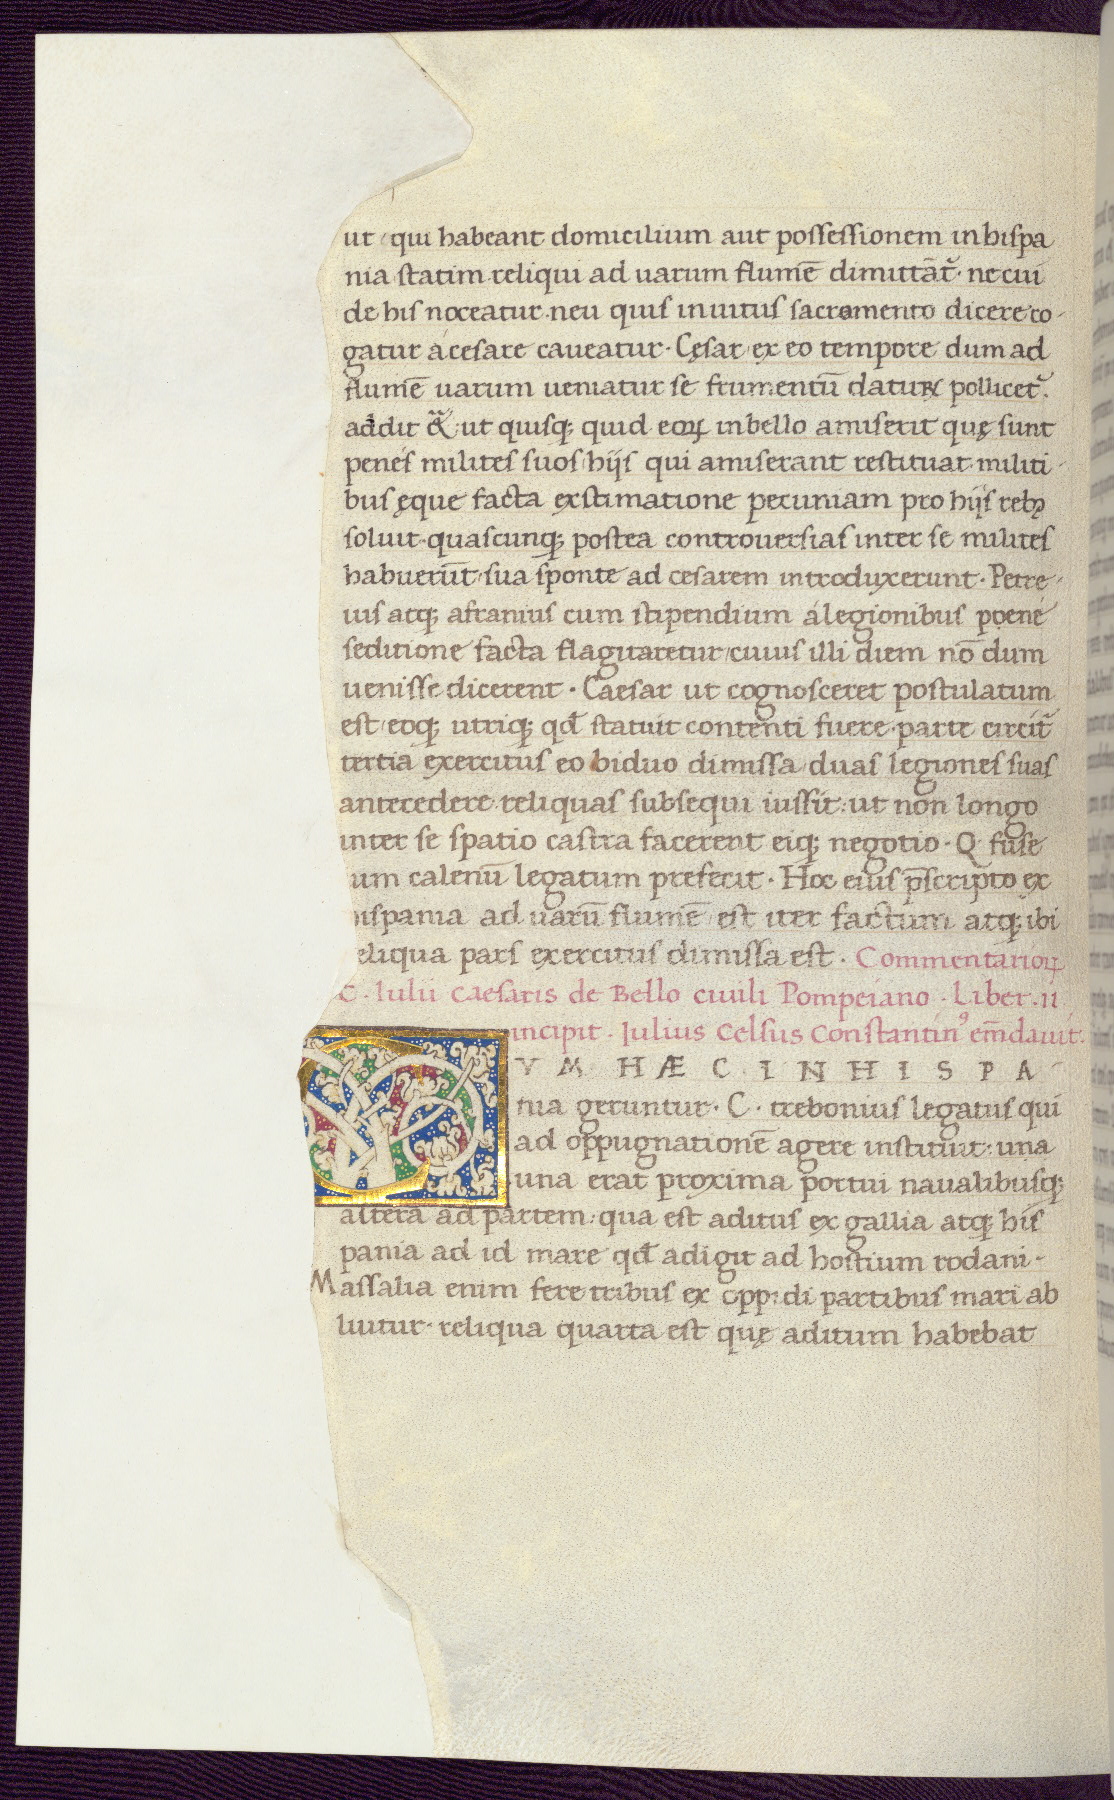 ut qui habeant domicilium aut possessionem in hispa
nia statim reliqui ad uarum flumē dimittāt᷑. ne cui
de his noceatur neu quis inuitus sacramento dicere co-
gatur á cesare caueatur. Cęsar ex eo tempore dum ad
flumē uarum ueniatur se frumentū daturꝝ pollicet᷑.
addit &᷑ ut quisq; quid eoꝝ in bello amiserit quę sunt
penés milites suos hijs qui amiserant restituat militi-
bus ęque facta exstimatione pecuniam pro hijs rebꝫ
soluit. quascunq; postea controuersias inter se milites
habuerūt sua sponte ad cesarem introduxerunt. Petre-
ius atq; afranius cum stipendium á legionibus poene
seditione facta flagitaretur cuius illi diem nō dum
uenisse dicerent. Caesar ut cognosceret postulatum
est eoq; utriq; qđ statuit contenti fuere parte circit᷑
tertia exercitus eo biduo dimissa duas legiones suas
antecedere reliquas subsequi iussit: ut non longo
inter se spatio castra facerent eiq; negotio. Q fuse
ium calenū legatum prefecit. Hoc eius p̄scripto ex
hispania ad uarū flumē est iter factum atq; ibi
reliqua pars exercitus dimissa est. Commentarioꝝ
C. Iulii Caesaris de Bello ciuili Pompeiano. Liber. II
incipit. Iulius Celsus Constantinꝰ em̄dauit.
DVM HÆC IN HISPA-
nia geruntur. C. trebonius legatus qui
ad oppugnationē agere instituit: una
una erat proxima portui naualibusq;
altera ad partem: qua est aditus ex gallia atq; his
pania ad id mare qđ adigit ad hostium rodani-
Massalia enim fere tribus ex oppidi partibus mari ab
luitur. reliqua quarta est quę aditum habebat